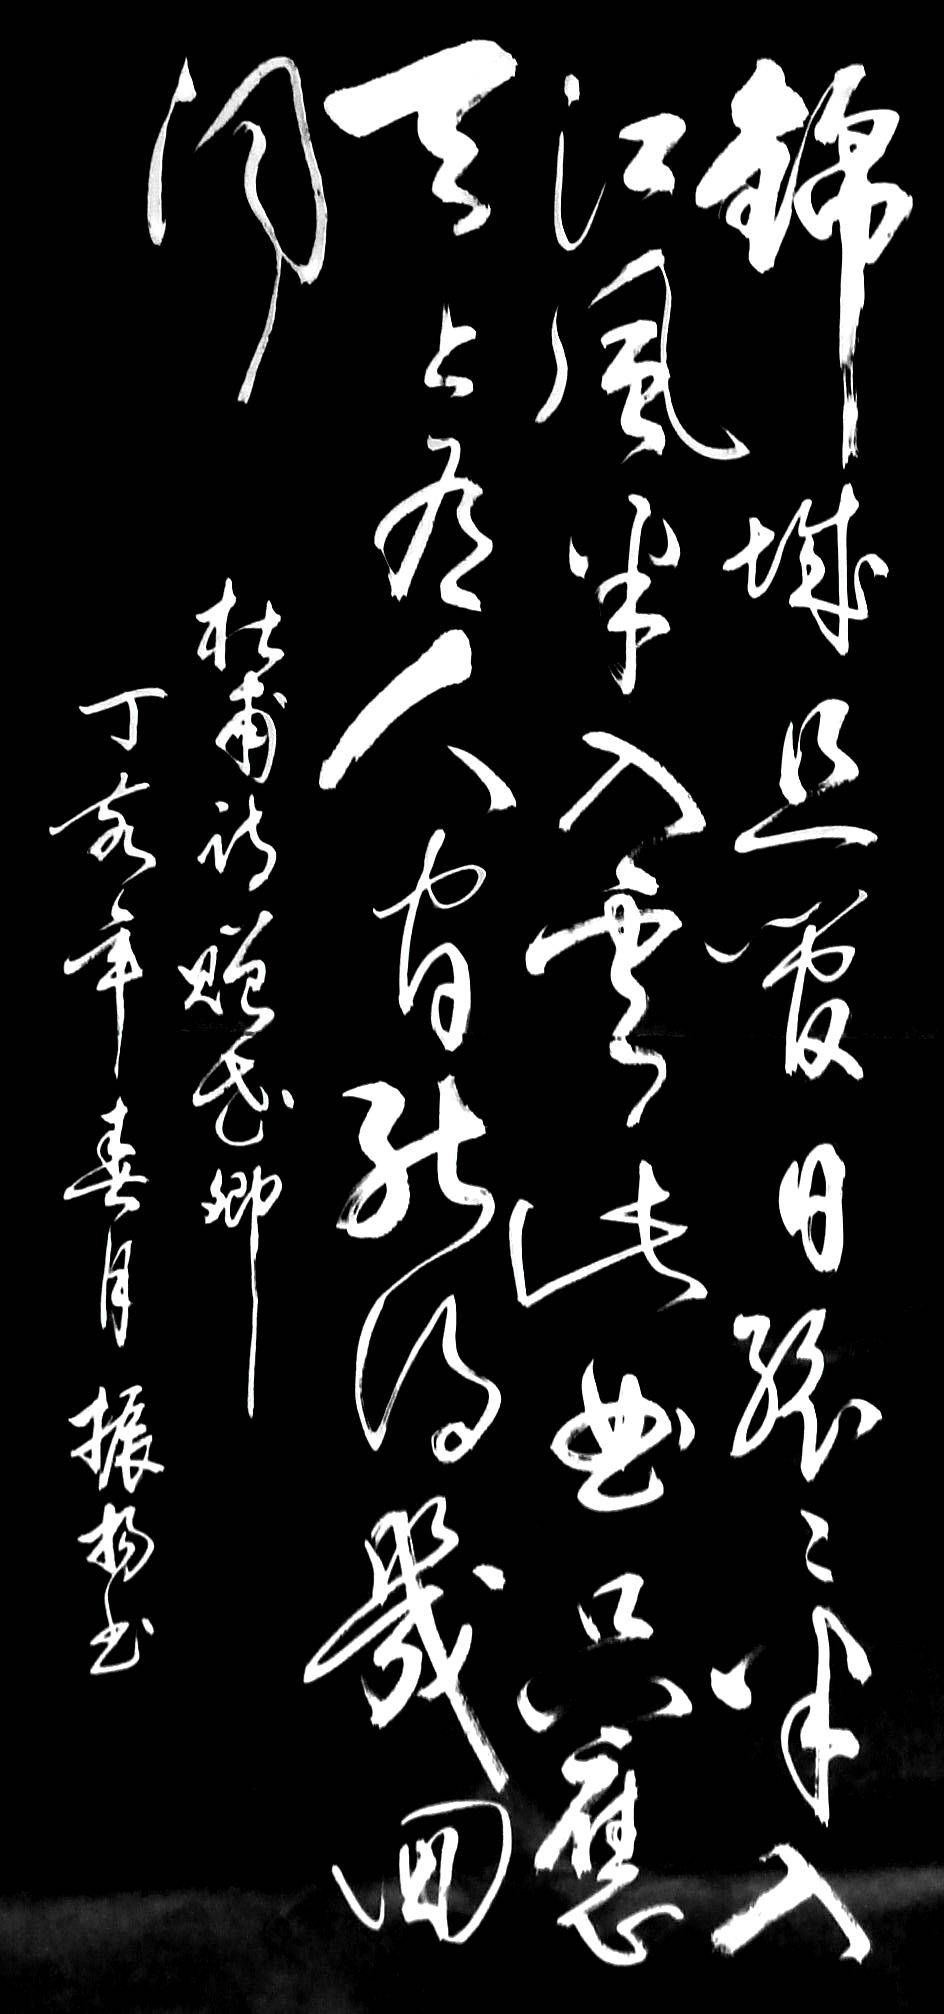 錦城丝管日紛々半入
江風半入雲此曲只應
天上有人間能得幾回
聞
杜甫詩贈花卿
丁亥年春月 振揚书